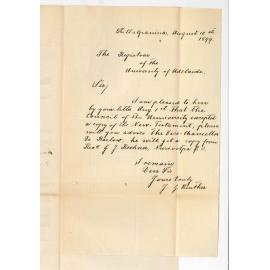 August 10th
1899.
The Registrar
of the
University of Adelaide.
Sir,
I am pleased to hear
by your letter Aug 1st that the
Council of the University accepted
a copy of the New Testament, please
will you advise the Vice-Chancellor
Dr Barlow, he will get a copy from
Revd G. J. Rechner, Nuriootpa P.O.
I remain
Dear Sir
Yours truly
J. G. Reuther